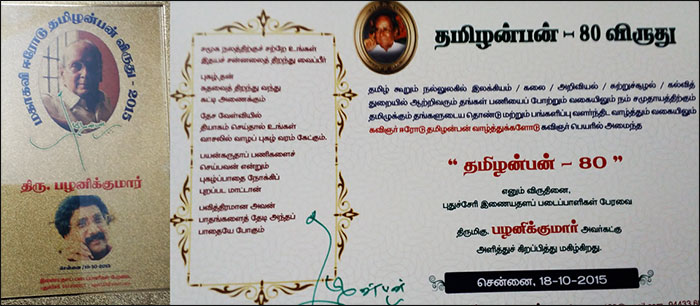 மகாகவி ஈரோடு தமிழன்பன் விருது - 2015
திரு. பழனிக்குமார்
சென்னை /18-10-2015
சமூக நலத்திற்குச் சற்றே உங்கள்
இதயச் சன்னலைத் திறந்து வைப்பீர்
புகழ்தன்
கதவைத் திறந்து வந்து
கட்டி அணைக்கும்
தேச வேள்வியில்
தியாகம் செய்தால் உங்கள்
வாசலில் வாழப் புகழ் வரம் கேட்கும்.
பயன்கருதாப் பணிகளைச்
செய்பவன் என்றும்
புகழ்ப்பாதை நோக்கிப்
புறப்பட மாட்டான்
பவித்திரமான அவன்
பாதங்களைத் தேடி அந்தப்
பாதையே போகும்
தமிழன்பன் – 80 விருது
தமிழ் கூறும் நல்லுலகில் இலக்கியம் / கலை / அறிவியல் / சுற்றுச்சூழல் / கல்வித்
துறையில் ஆற்றிவரும் தங்கள் பணியைப் போற்றும் வகையிலும் நம் சமுதாயத்திற்கும்
தமிழுக்கும் தங்களுடைய தொண்டு மற்றும் பங்களிப்பு வளர்ந்திட வாழ்த்தும் வகையிலும்
கவிஞர் ஈரோடு தமிழன்பன் வாழ்த்துக்களோடு கவிஞர் பெயரில் அமைந்த
“ தமிழன்பன் – 80 ”
எனும் விருதினை,
புதுச்சேரி இணையதளப் படைப்பாளிகள் பேரவை
திருமிகு. பழனிக்குமார் அவர்கட்கு
அளித்துச் சிறப்பித்து மகிழ்கிறது.
சென்னை, 18-10-2015